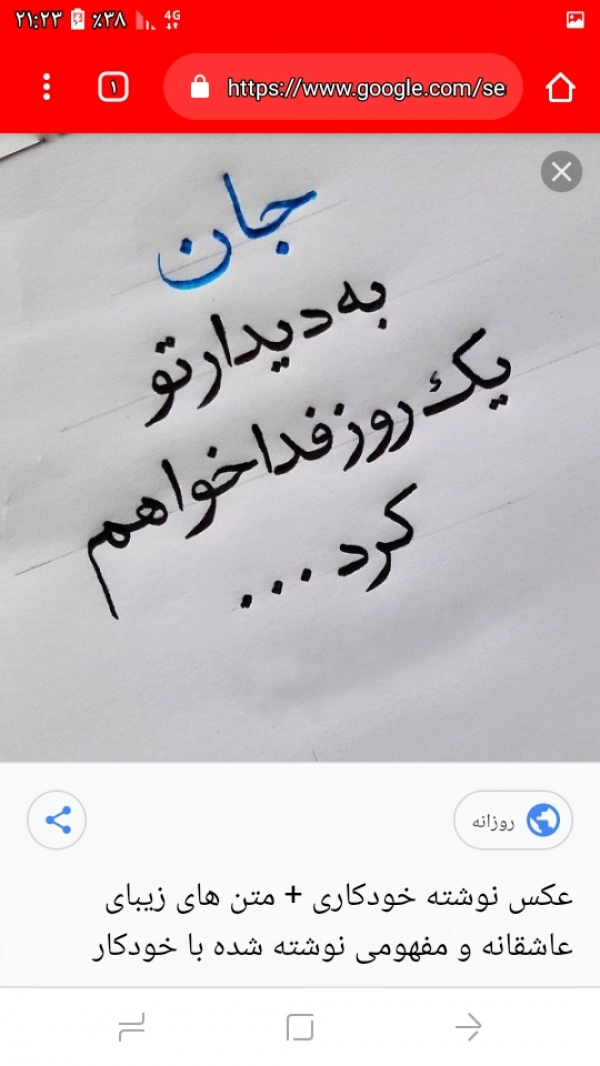 ۲۱:۲۳ ٪۳۸ 4G
۱ https://www.google.com/se
جان
به دیدار تو
یک روز فدا خواهم
کرد ...
روزانه
عکس نوشته خودکاری + متن های زیبای
عاشقانه و مفهومی نوشته شده با خودکار